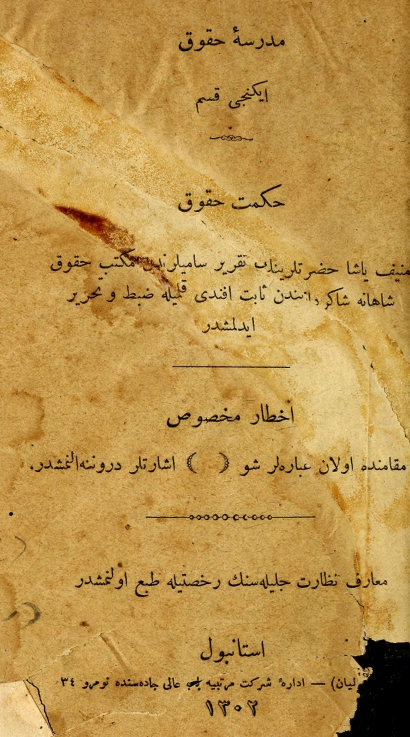 مدرسهٔ حقوق
ایكنجی قسم
حكمت حقوق
منیف پاشا حضرتلرینك تقریر سامیلرندن مكتب حقوق
شاهانه ثابت افندی قلمیله ضبط و تحریر
ایدلمشدر
اخطار مخصوص
مقامنده اولان عبارهلر شو ( ) اشارتلر دروننه النمشدر.
معارف نظارت جلیلهسنك رخصتیله طبع اولنمشدر
استانبول
لیان) — ادارهٔ شركت مرتبیه باب عالی جادهسنده نومرو ٣٤
١٣٠٢